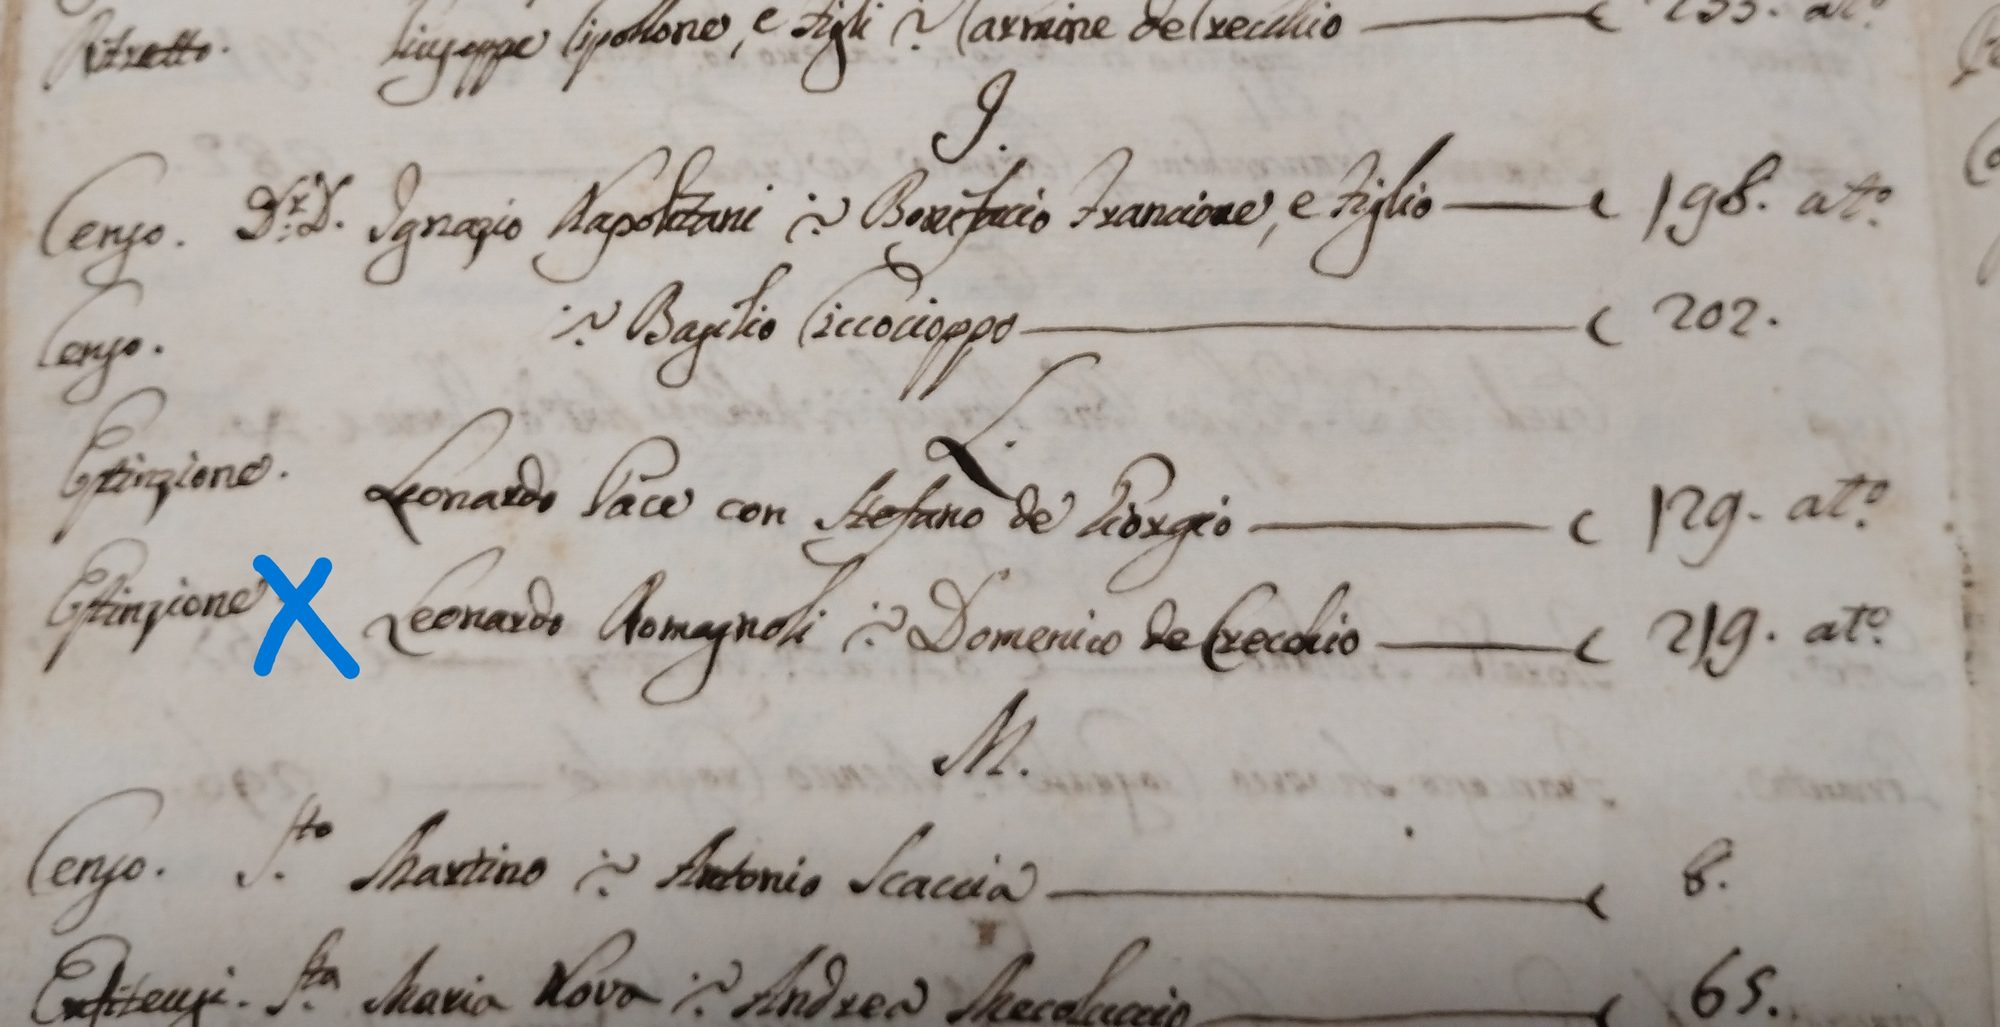 Ritratto. Giuseppe Cipollone, e figli ÷ Carmine de Crecchio — c 233. at.º
I.
Censo. D.r D. Ignazio Napolitani ÷ Bonifacio Francione, e figlio — c 198. at.º
Censo. ÷ Basilio Ciccocioppo — c 202.
L.
Estinzione. Leonardo Pace con Stefano de Giorgio — c 129. at.º
Estinzione Leonardo Romagnoli ÷ Domenico de Crecchio — c 219. at.º
M.
Censo. S.to Martino ÷ Antonio Scaccia — c 8.
Enfiteusi. S.ta Maria Nova ÷ Andrea Mecoluccio — c 65.